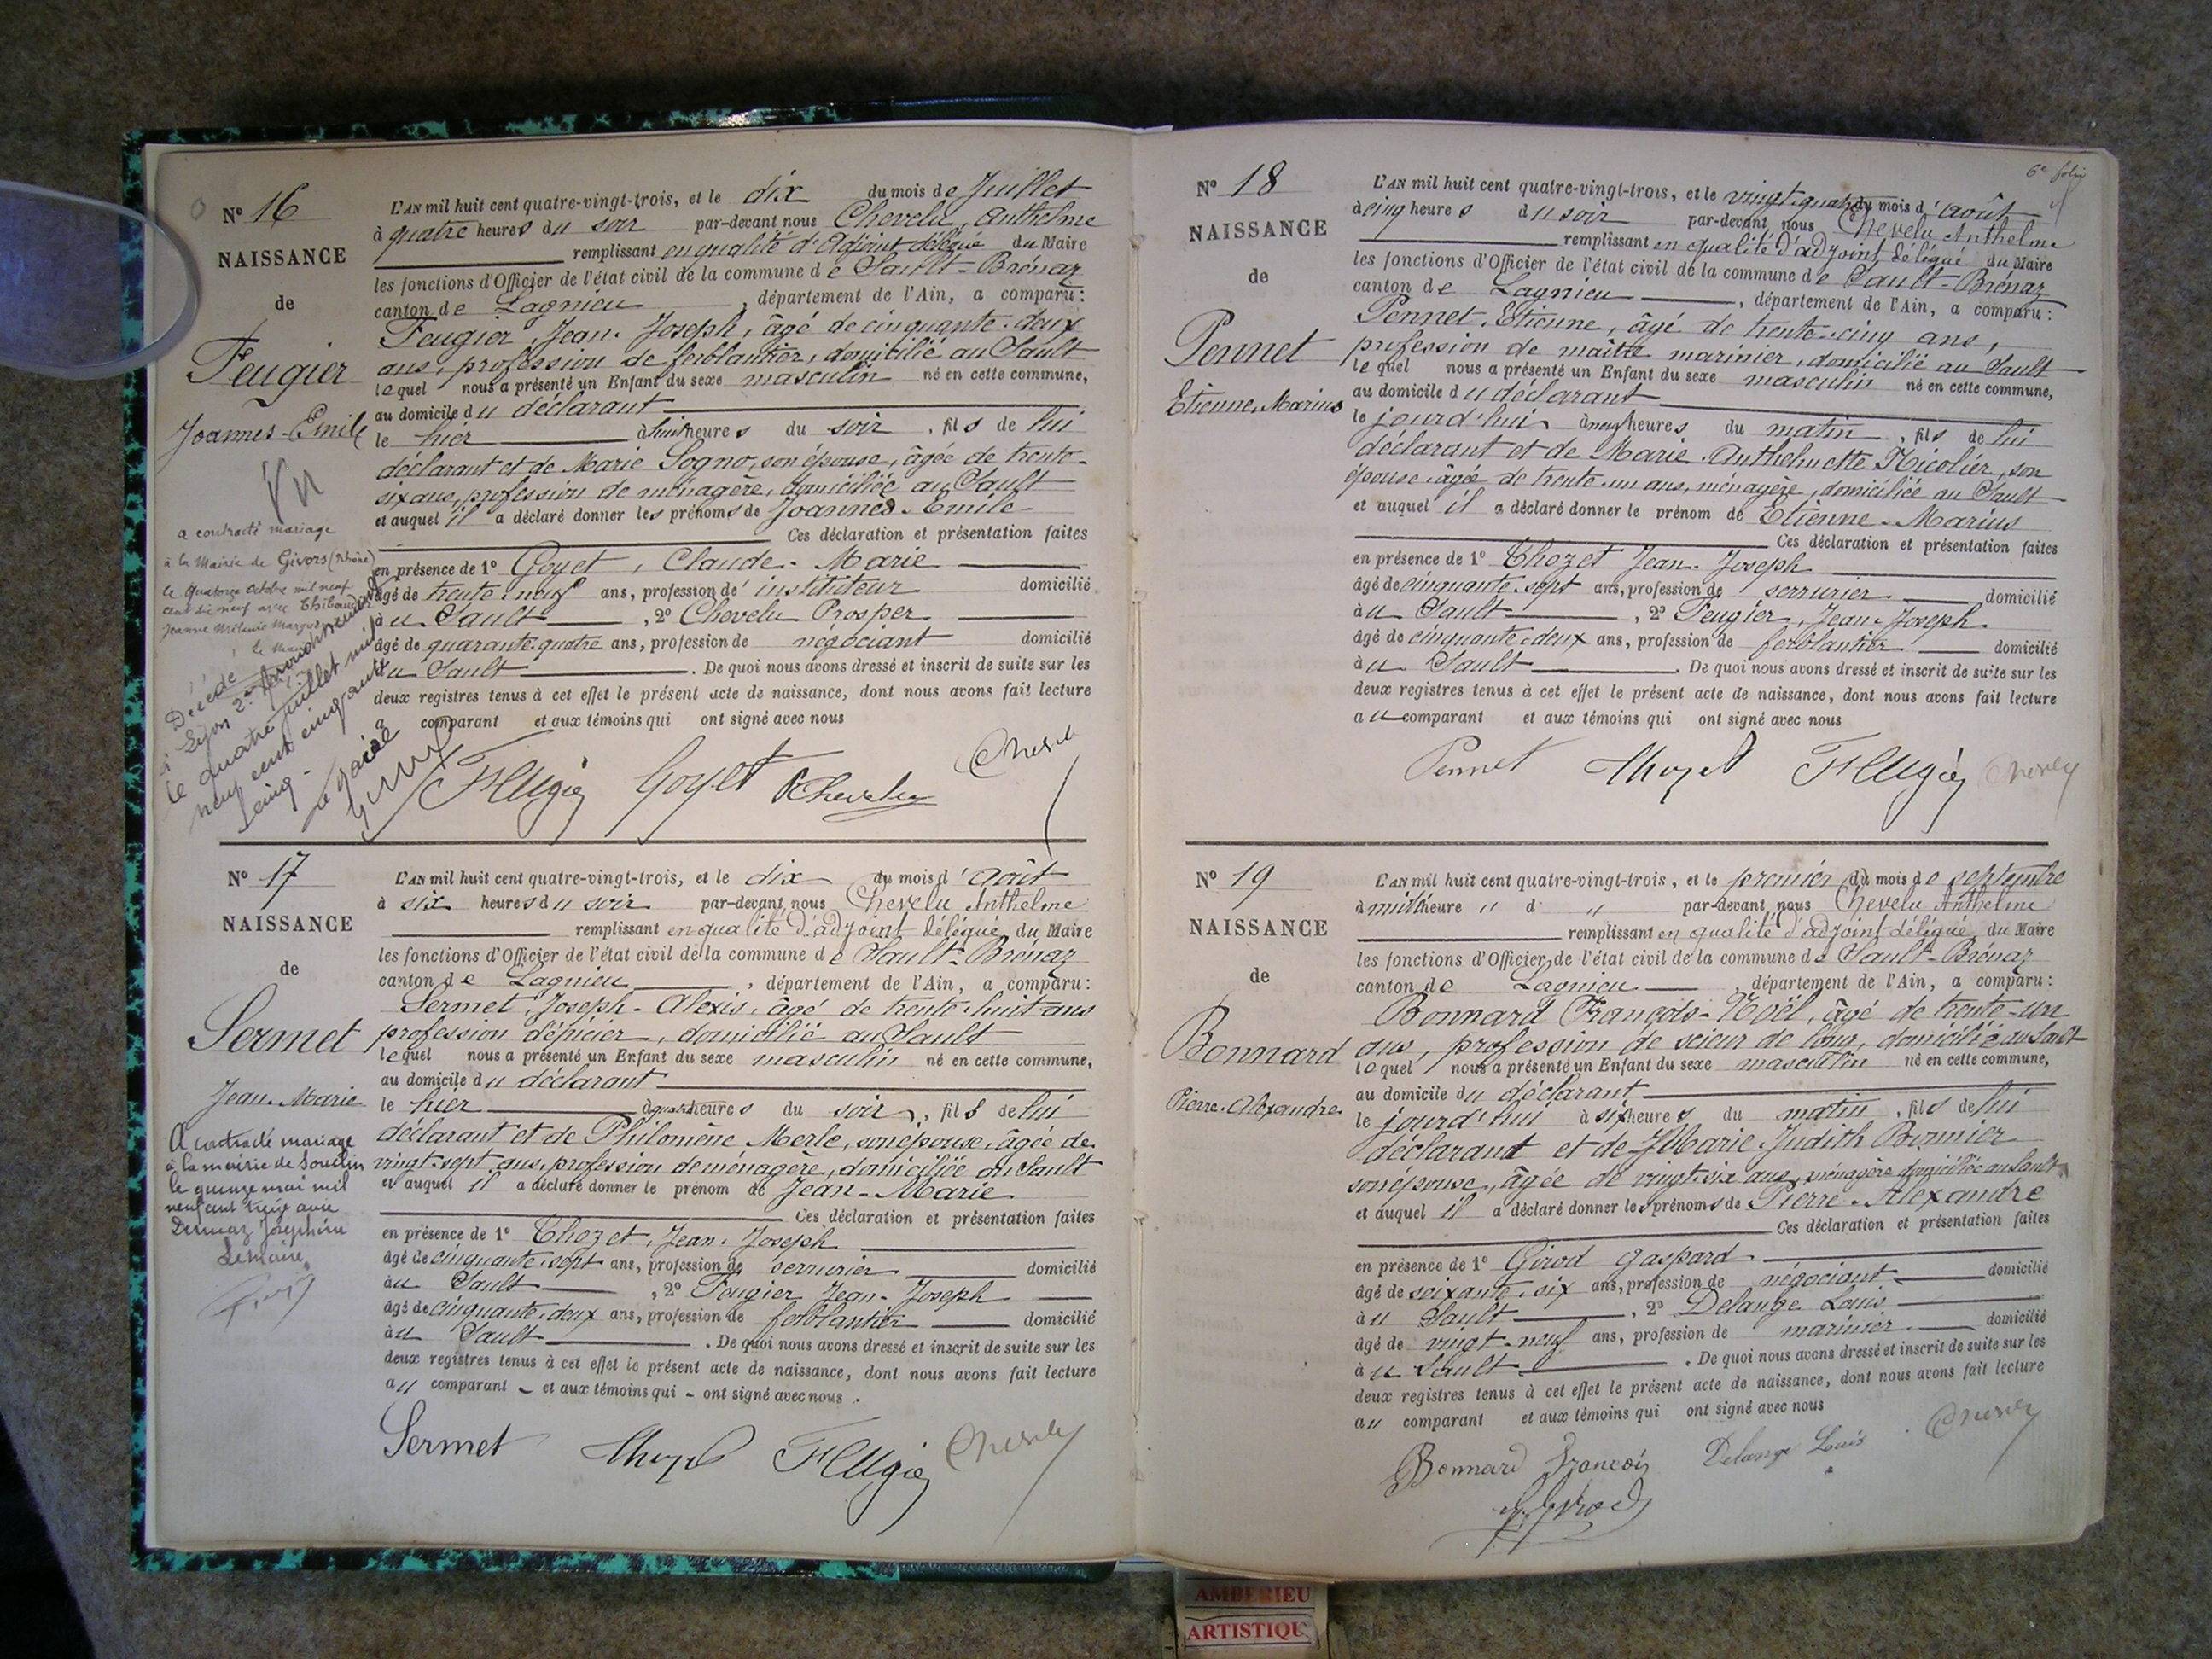 N° 16
NAISSANCE
de
Feugier
Joannes-Emile
Vu
a contracté mariage
à la Mairie de Givors (Rhône)
le quatorze Octobre mil neuf
cent dix neuf avec Thibaudier
Jeanne Mélanie
le Maire
Décédé
à Lyon 2e Arrondissement
le quatre juillet mil
neuf cent cinquante
cinq.
L'AN mil huit cent quatre-vingt-trois, et le dix du mois de Juillet
à quatre heures du soir par-devant nous Chevelu, Anthelme
remplissant en qualité d'Adjoint délégué du Maire
les fonctions d'Officier de l'état civil de la commune de Sault-Brénaz
canton de Lagnieu, département de l'Ain, a comparu:
Feugier, Jean-Joseph, âgé de cinquante-deux
ans, profession de ferblantier, domicilié au Sault
lequel nous a présenté un Enfant du sexe masculin né en cette commune,
au domicile du déclarant
le hier à huit heures du soir, fils de lui
déclarant et de Marie Sogno, son épouse, âgée de trente-
six ans, profession de ménagère, domiciliée au Sault
et auquel il a déclaré donner les prénoms de Joannès-Emile
Ces déclaration et présentation faites
en présence de 1° Goyet, Claude-Marie
âgé de trente-neuf ans, profession d'instituteur domicilié
au Sault, 2° Chevelu Prosper
âgé de quarante-quatre ans, profession de négociant domicilié
au Sault. De quoi nous avons dressé et inscrit de suite sur les
deux registres tenus à cet effet le présent acte de naissance, dont nous avons fait lecture
a comparant et aux témoins qui ont signé avec nous
Feugier Goyet PChevelu Chevelu
N° 17
NAISSANCE
de
Sermet
Jean-Marie
A contracté mariage
à la mairie de Souclin
le quinze mai mil
neuf cent treize avec
Dernaz Joséphine
Le Maire
L'AN mil huit cent quatre-vingt-trois, et le dix du mois d'Août
à six heures du soir par-devant nous Chevelu Anthelme
remplissant en qualité d'adjoint délégué du Maire
les fonctions d'Officier de l'état civil de la commune de Sault-Brénaz
canton de Lagnieu, département de l'Ain, a comparu:
Sermet, Joseph-Alexis, âgé de trente-huit ans
profession d'épicier, domicilié au Sault
lequel nous a présenté un Enfant du sexe masculin né en cette commune,
au domicile du déclarant
le hier à quatre heures du soir, fils de lui
déclarant et de Philomène Merle, son épouse, âgée de
vingt-sept ans, profession de ménagère, domiciliée au Sault
et auquel il a déclaré donner le prénom de Jean-Marie
Ces déclaration et présentation faites
en présence de 1° Thozet, Jean-Joseph
âgé de cinquante-sept ans, profession de serrurier domicilié
au Sault, 2° Feugier Jean-Joseph
âgé de cinquante-deux ans, profession de ferblantier domicilié
au Sault. De quoi nous avons dressé et inscrit de suite sur les
deux registres tenus à cet effet le présent acte de naissance, dont nous avons fait lecture
au comparant et aux témoins qui ont signé avec nous.
Sermet Thozet Feugier Chevelu
6e folio
N° 18
NAISSANCE
de
Pennet
Etienne-Marius
L'AN mil huit cent quatre-vingt-trois, et le vingt-quatre du mois d'août
à cinq heures du soir par-devant nous Chevelu Anthelme
remplissant en qualité d'adjoint délégué du Maire
les fonctions d'Officier de l'état civil de la commune de Sault-Brénaz
canton de Lagnieu, département de l'Ain, a comparu:
Pennet, Etienne, âgé de trente-cinq ans,
profession de maître marinier, domicilié au Sault
lequel nous a présenté un Enfant du sexe masculin né en cette commune,
au domicile du déclarant
le jourd'hui à neuf heures du matin, fils de lui
déclarant et de Marie-Anthelmette Nicolier, son
épouse âgée de trente-un ans, ménagère, domiciliée au Sault
et auquel il a déclaré donner le prénom de Etienne-Marius
Ces déclaration et présentation faites
en présence de 1° Thozet Jean-Joseph
âgé de cinquante-sept ans, profession de serrurier domicilié
au Sault, 2° Feugier, Jean-Joseph
âgé de cinquante-deux ans, profession de ferblantier domicilié
au Sault. De quoi nous avons dressé et inscrit de suite sur les
deux registres tenus à cet effet le présent acte de naissance, dont nous avons fait lecture
au comparant et aux témoins qui ont signé avec nous
Pennet Thozet Feugier Chevelu
N° 19
NAISSANCE
de
Bonnard
Pierre-Alexandre
L'AN mil huit cent quatre-vingt-trois, et le premier du mois de septembre
à midi heure " d " par-devant nous Chevelu Anthelme
remplissant en qualité d'adjoint délégué du Maire
les fonctions d'Officier de l'état civil de la commune de Sault-Brénaz
canton de Lagnieu, département de l'Ain, a comparu:
Bonnard François-Noël, âgé de trente-un
ans, profession de scieur de long, domicilié au Sault
lequel nous a présenté un Enfant du sexe masculin né en cette commune,
au domicile du déclarant
le jourd'hui à six heures du matin, fils de lui
déclarant et de Marie-Judith Bonnier
son épouse, âgée de vingt-six ans, ménagère domiciliée au Sault
et auquel il a déclaré donner les prénoms de Pierre-Alexandre
Ces déclaration et présentation faites
en présence de 1° Girod Gaspard
âgé de soixante-six ans, profession de négociant domicilié
au Sault, 2° Delange Louis
âgé de vingt-neuf ans, profession de marinier domicilié
au Sault. De quoi nous avons dressé et inscrit de suite sur les
deux registres tenus à cet effet le présent acte de naissance, dont nous avons fait lecture
au comparant et aux témoins qui ont signé avec nous
Bonnard François Delange Louis Chevelu
G. Girod
AMBERIEU
ARTISTIQU